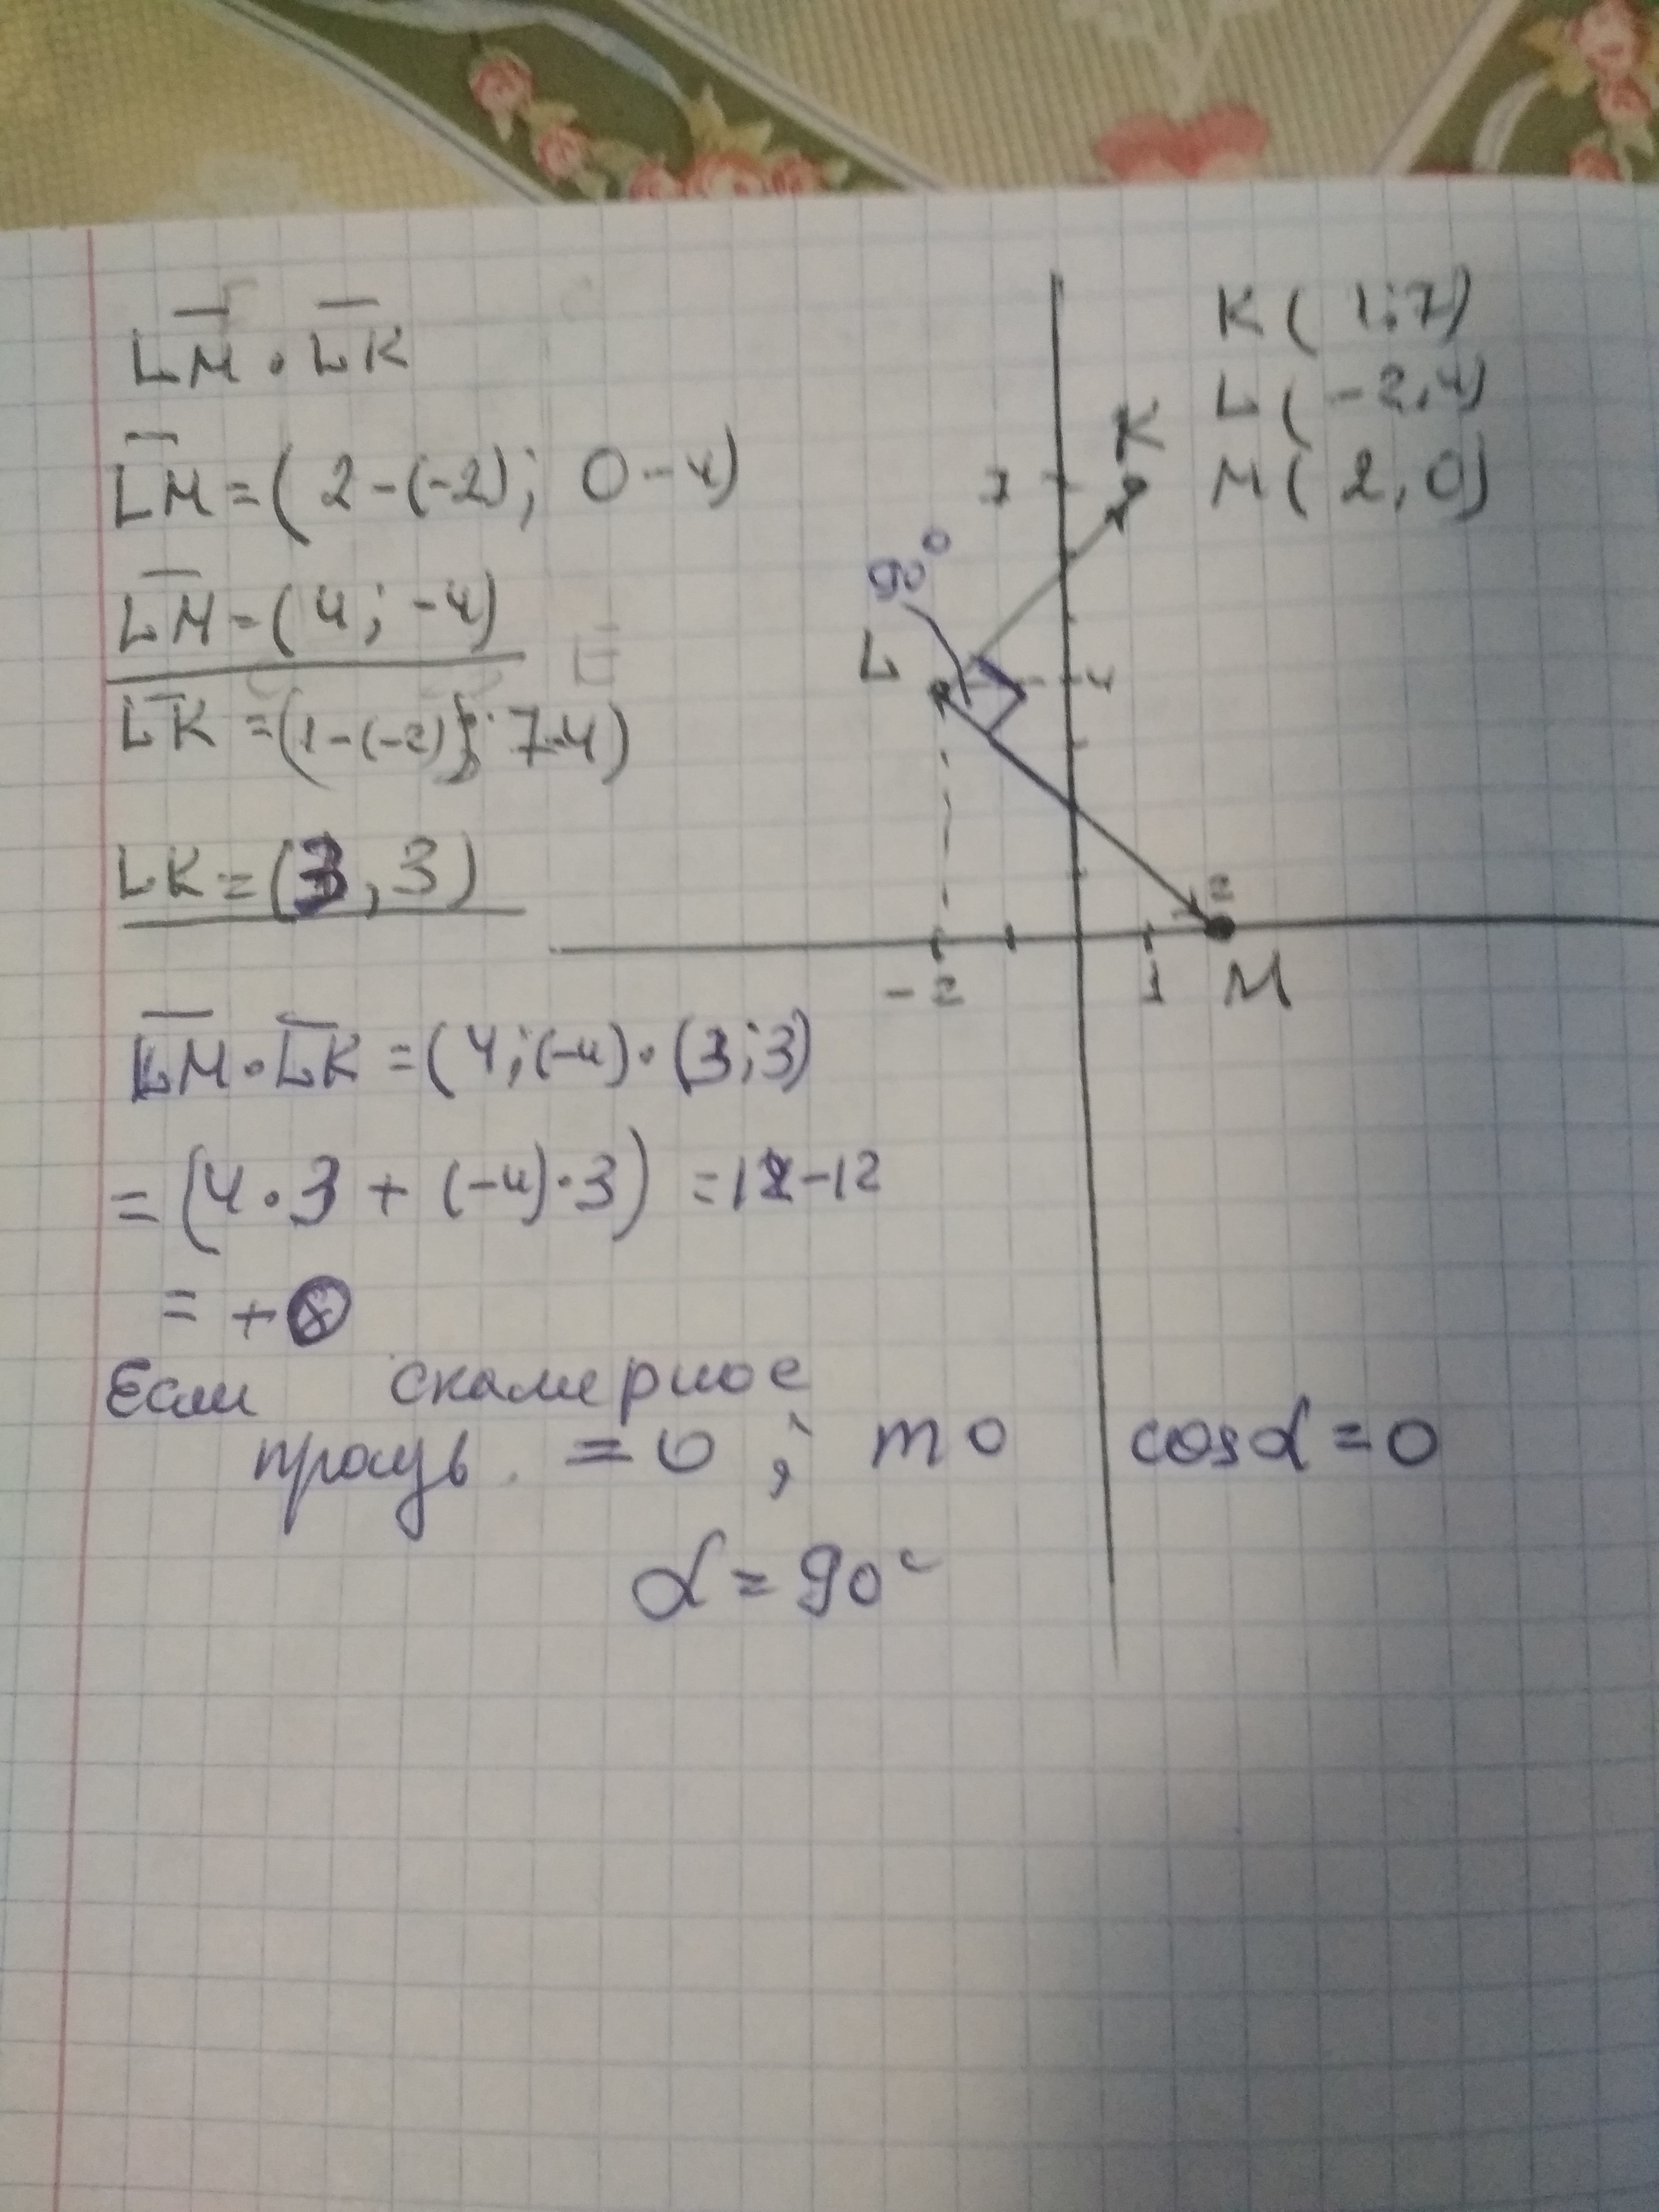 LM · LK
LM = (2-(-2); 0-4)
LM = (4; -4)
LK = (1-(-2); 7-4)
LK = (3, 3)
LM · LK = (4; (-4) · (3; 3)
= (4 · 3 + (-4) · 3) = 12-12
= +
Если скалярное
произв. = 0, то cos α = 0
α = 90°
K ( 1; 7)
L ( -2, 4)
M ( 2, 0)
K
7
90°
L
4
2
-2
1
M